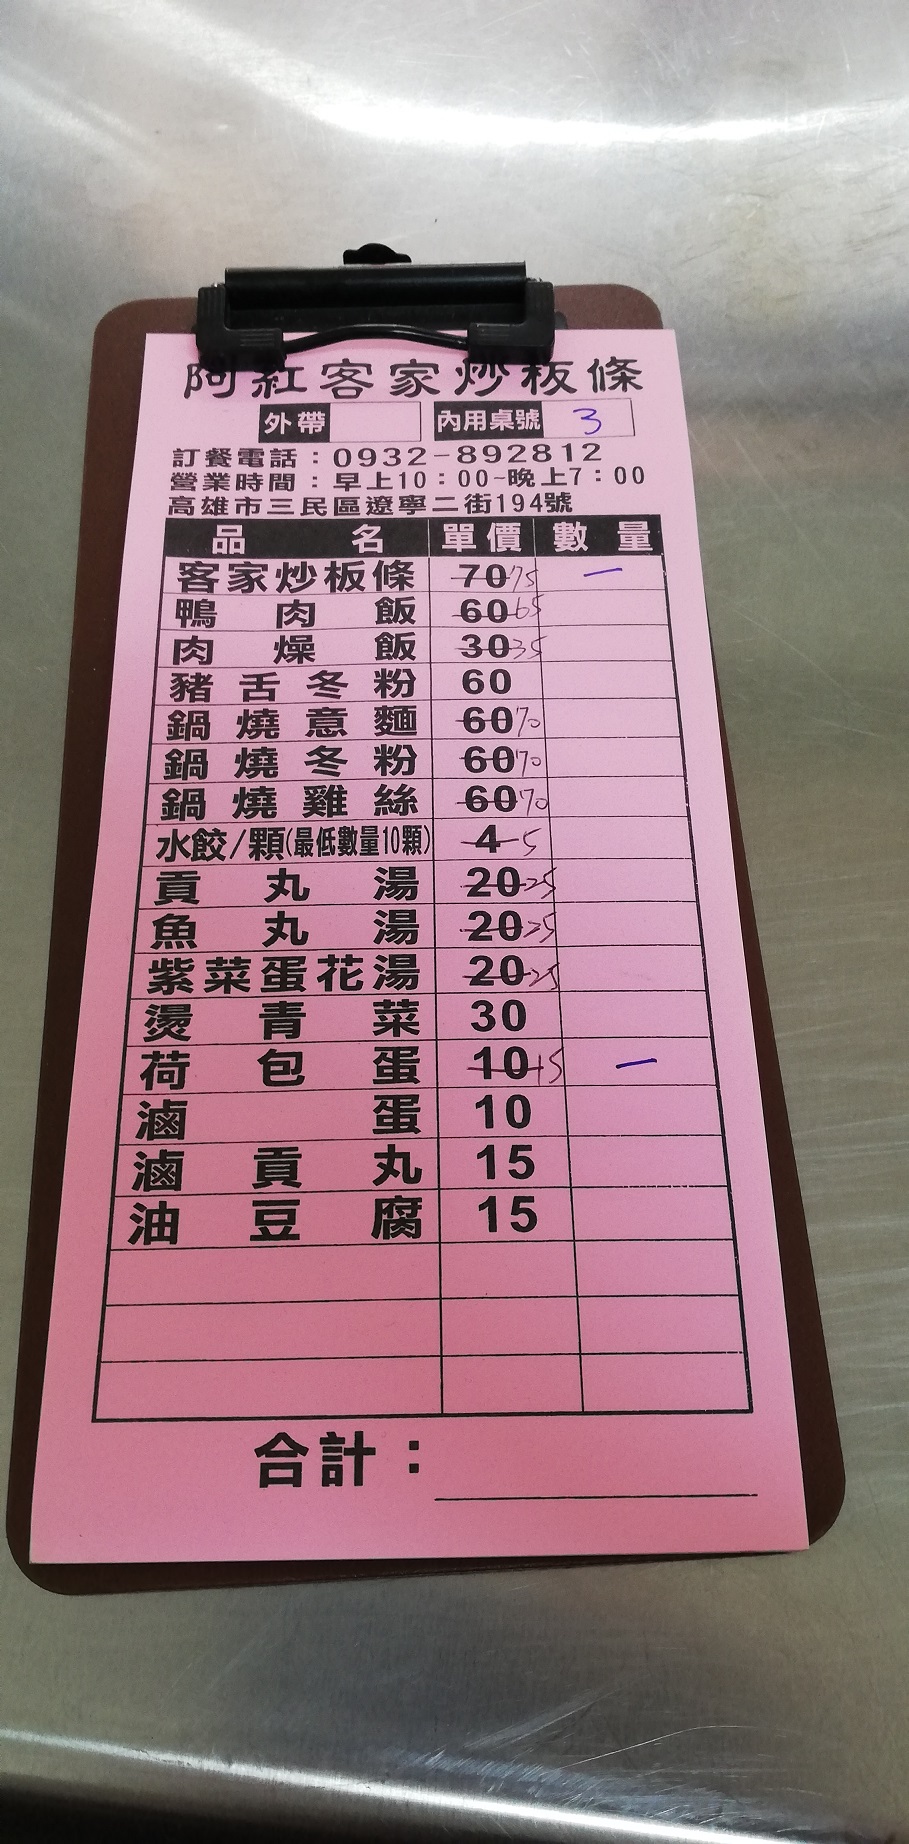 阿紅客家炒板條
外帶 內用桌號 3
訂餐電話：0932-892812
營業時間：早上10：00~晚上7：00
高雄市三民區遼寧二街194號
品名 單價 數量
客家炒板條 70 75 一
鴨肉飯 60 65
肉燥飯 30 35
豬舌冬粉 60
鍋燒意麵 60 70
鍋燒冬粉 60 70
鍋燒雞絲 60 70
水餃/顆(最低數量10顆) 4 5
貢丸湯 20 25
魚丸湯 20 25
紫菜蛋花湯 20 25
燙青菜 30
荷包蛋 10 15 一
滷蛋 10
滷貢丸 15
油豆腐 15
合計：